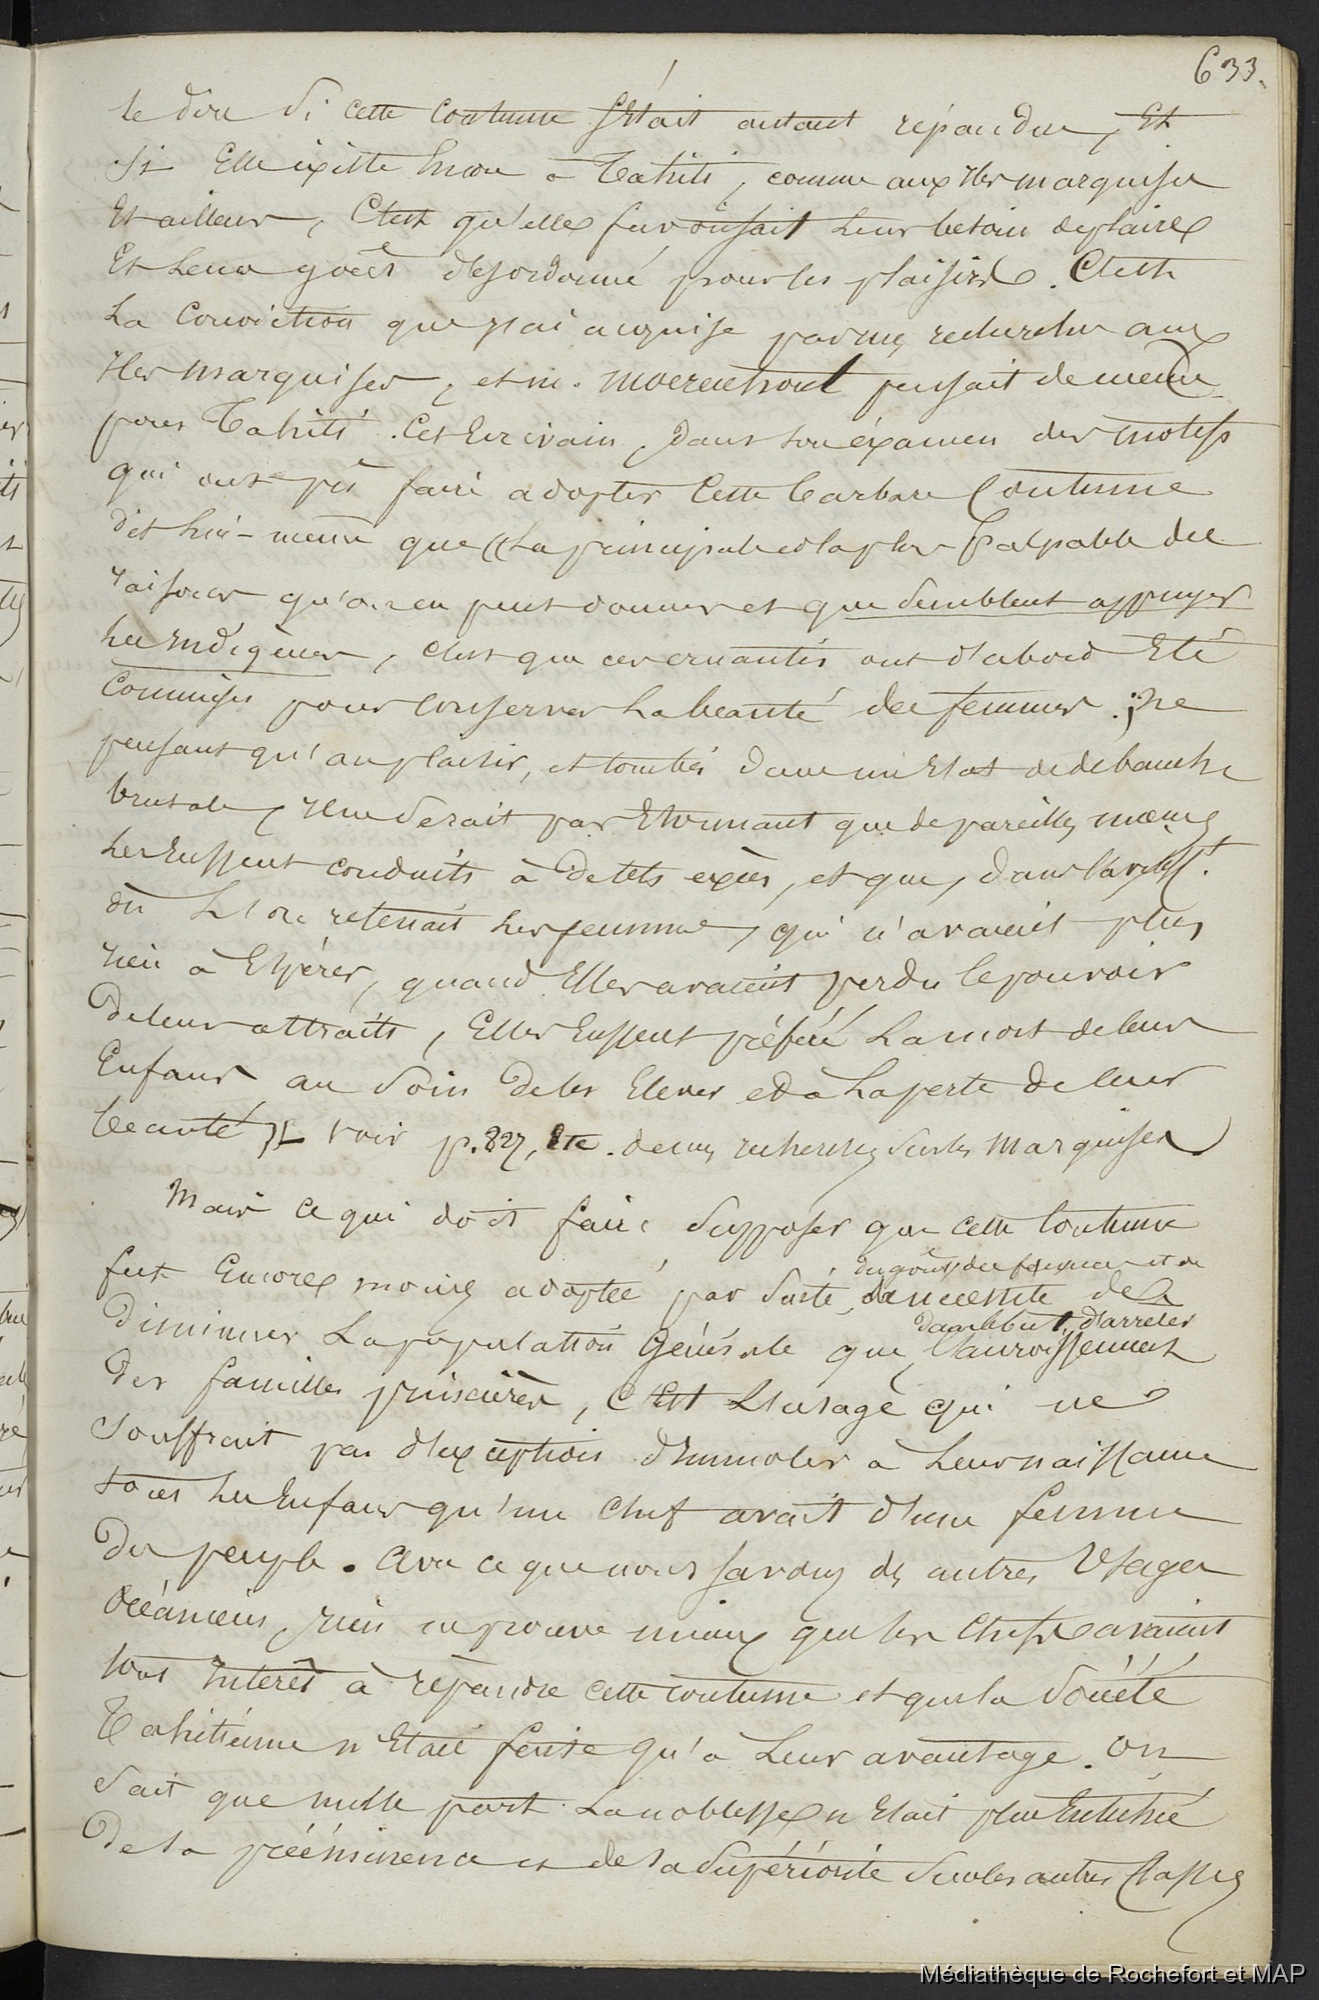 633.
le dire si cette coutume s'était autant répandue, et
si elle existe encore à Tahiti, comme aux îles marquises
et ailleurs, c'est qu'elle favorisait leur besoin de plaire
et leur goût désordonné pour les plaisirs. C'est
la conviction que j'ai acquise par mes recherches aux
îles marquises, et m. moerenhout pensait de même
pour Tahiti. Cet Ecrivain, dans son éxamen des motifs
qui ont pû faire adopter cette barbare coutume
dit lui-même que "la principale et la plus palpable des
raisons qu'on en peut donner et que semblent appuyer
les indigènes, c'est que ces cruautés ont d'abord été
commises pour conserver la beauté des femmes; ne
pensant qu'au plaisir, et tombés dans un état de débauche
brutale, il ne serait pas étonnant que de pareilles mœurs
les eussent conduits à de tels excès, et que, dans l'aviliss.t
où l'on retenait les femmes, qui n'avaient plus
rien à espérer, quand elles avaient perdu le pouvoir
de leurs attraits, elles eussent préféré la mort de leurs
enfans au soin de les élever et à la perte de leur
beauté" (voir p. 827, etc. de mes recherches sur les marquises)
Mais ce qui doit faire supposer que cette coutume
fut encore moins adoptée par suite
du goût des femmes et de
la nécessité de
diminuer la population générale que
dans le but d'arrêter
l'accroissement
des familles princières, c'est l'usage qui ne
souffrait pas d'exception d'immoler à leur naissance
tous les enfans qu'un chef avait d'une femme
du peuple. Avec ce que nous savons des autres usages
océaniens, rien ne prouve mieux que les chefs avaient
tout intérêt à répandre cette coutume et que la société
Tahitienne n'était faite qu'à leur avantage. On
sait que nulle part la noblesse n'était plus entichée
de sa prééminence et de sa supériorité sur les autres classes
Médiathèque de Rochefort et MAP